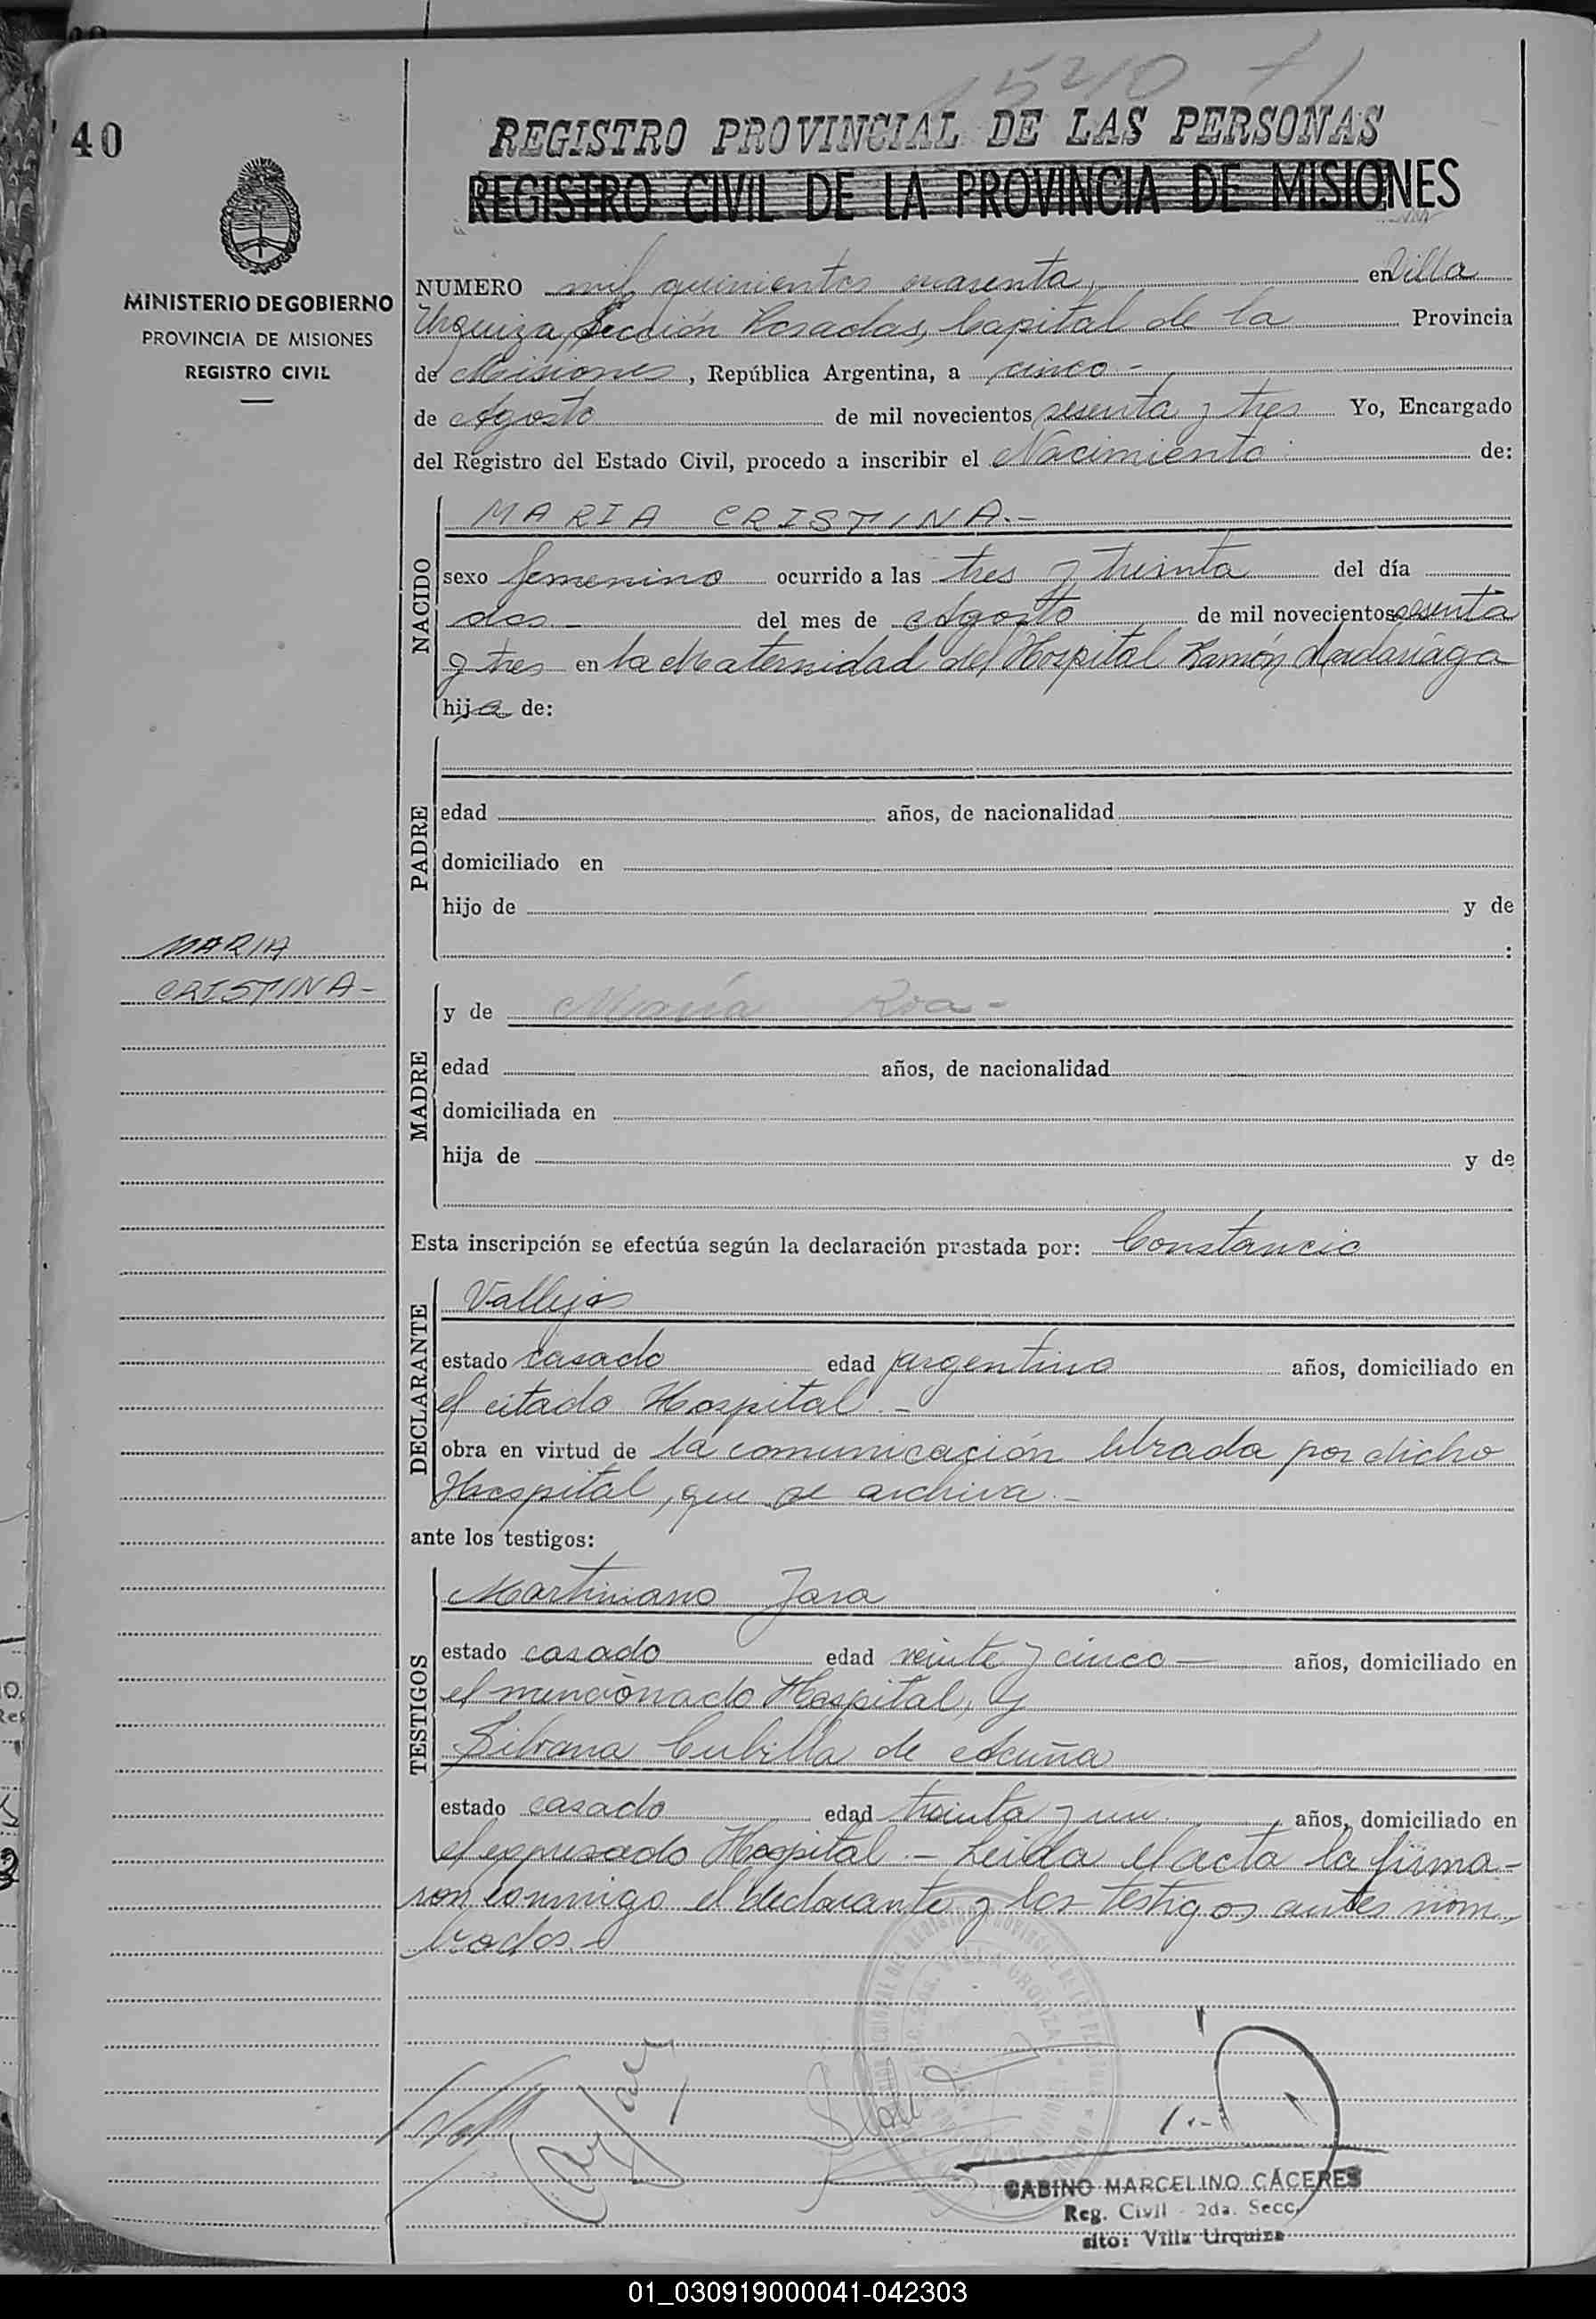 1540
40
REGISTRO PROVINCIAL DE LAS PERSONAS
REGISTRO CIVIL DE LA PROVINCIA DE MISIONES
MINISTERIO DE GOBIERNO
PROVINCIA DE MISIONES
REGISTRO CIVIL
NUMERO mil quinientos cuarenta, en Villa
Urquiza, Sección Posadas, Capital de la Provincia
de Misiones, República Argentina, a cinco -
de Agosto de mil novecientos sesenta y tres Yo, Encargado
del Registro del Estado Civil, procedo a inscribir el Nacimiento de:
NACIDO
MARIA CRISTINA.-
sexo femenino ocurrido a las tres y treinta del día
dos - del mes de Agosto de mil novecientos sesenta
y tres en la Maternidad del Hospital Ramón Madariaga
hija de:
PADRE
edad años, de nacionalidad
domiciliado en
hijo de y de
:
MARIA
CRISTINA-
MADRE
y de María Roa-
edad años, de nacionalidad
domiciliada en
hija de y de
Esta inscripción se efectúa según la declaración prestada por: Constancio
DECLARANTE
Vallejos
estado casado edad argentino años, domiciliado en
el citado Hospital.-
obra en virtud de la comunicación librada por dicho
Hospital, que se archiva.-
ante los testigos:
TESTIGOS
Martiniano Jara
estado casado edad veinte y cinco - años, domiciliado en
el mencionado Hospital, y
Silvana Cubilla de Acuña
estado casado edad treinta y un años, domiciliado en
el expresado Hospital.- Leida el acta la firma-
ron conmigo el declarante y los testigos antes nom-
brados.-
GABINO MARCELINO CÁCERES
Reg. Civil - 2da. Secc.
sito: Villa Urquiza
01_030919000041-042303